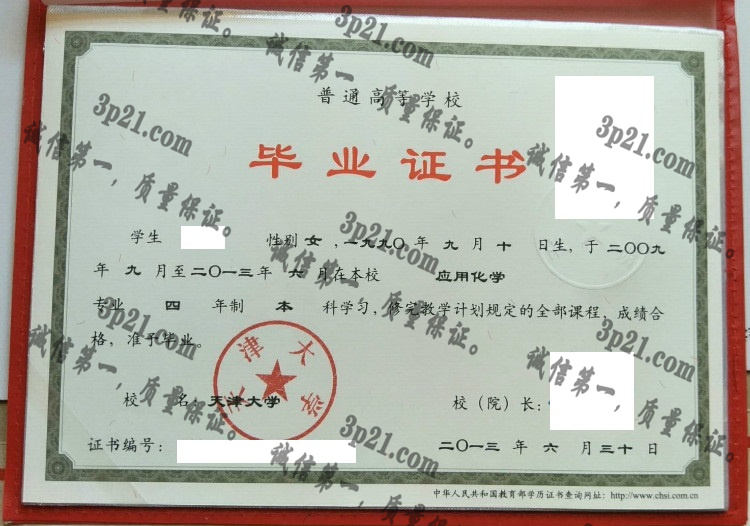 普通高等学校
毕业证书
学生 性别 女 ，一九九〇 年 九 月 十 日生，于 二〇〇九
年 九 月至 二〇一三 年 六 月在本校 应用化学
专业 四 年制 本 科学习，修完教学计划规定的全部课程，成绩合
格，准予毕业。
天津大学
校 名：天津大学 校（院）长：
证书编号： 二〇一三 年 六 月 三十 日
中华人民共和国教育部学历证书查询网址：http://www.chsi.com.cn
质量保证。
3p21.com
诚信第一，质量保证。
3p21.com
诚信第一，质量保证。
3p21.com
诚信第一，质量保证。
3p21.com
诚信第一，质量保证。
3p21.com
诚信第一，质量保证。
3p21.com
诚信第一，质量保证。
3p21.com
诚信第一，质量保证。